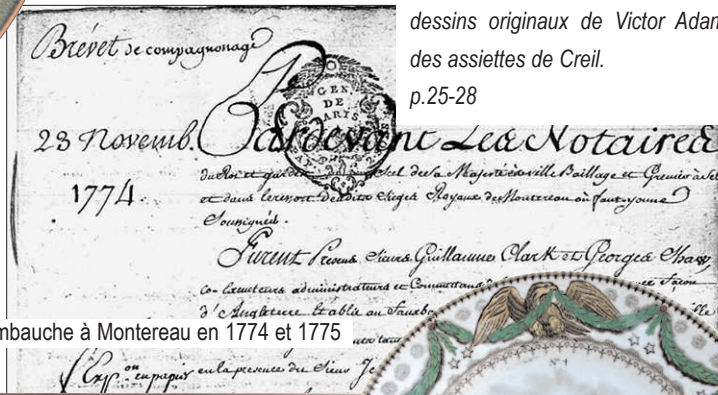 dessins originaux de Victor Adam
des assiettes de Creil.
p.25-28
Brevet de compagnonage
GEN.
DE
PARIS
23 Novemb. Pardevant Les Notaires
1774
du Roi et gardes Scel de sa Majesté es ville Baillage et Grenier à Sel
et dans le ressort desdits Sieges Royaux de Montereau où faut-yonne
Soussignés.
Furent Presens Sieurs Guillaume Clark et Georges Shaw,
co-Directeurs administrateurs et Façon
d'Angleterre Etablie au Faub
mbauche à Montereau en 1774 et 1775
Exp.on en papier en la presence du Sieur
N° 1